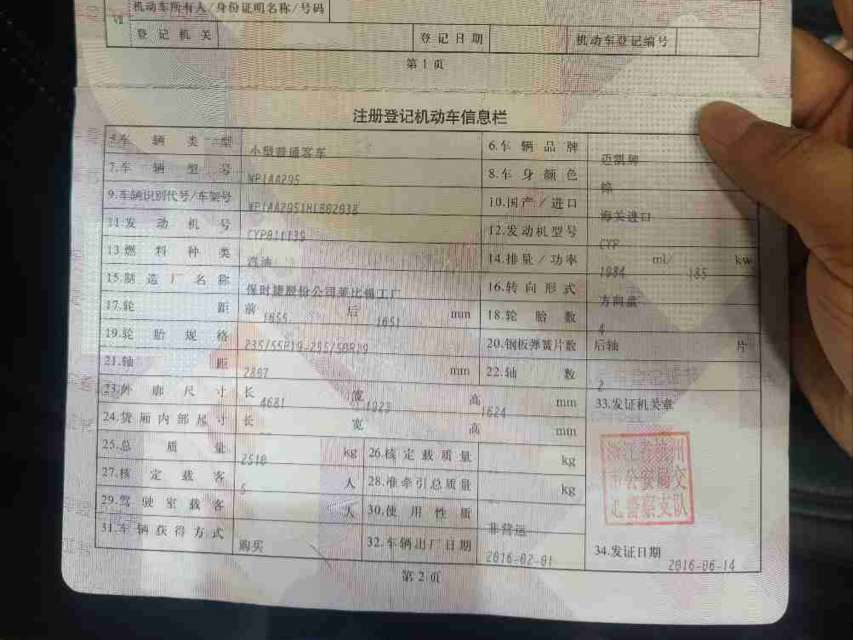 机动车所有人/身份证明名称/号码
登记机关 登记日期 机动车登记编号
第1页
注册登记机动车信息栏
5.车辆类型 小型普通客车 6.车辆品牌 迈凯牌
7.车辆型号 WP1AA295 8.车身颜色 棕
9.车辆识别代号/车架号 10.国产/进口 海关进口
11.发动机号 12.发动机型号 CYP
13.燃料种类 汽油 14.排量/功率 1984 ml/ 185 kw
15.制造厂名称 保时捷股份公司莱比锡工厂 16.转向形式 方向盘
17.轮距 前 1655 后 1651 mm 18.轮胎数 4
19.轮胎规格 235/55R19-255/50R19 20.钢板弹簧片数 后轴 片
21.轴距 2807 mm 22.轴数 2
23.外廓尺寸 长 4681 宽 1923 高 1624 mm 33.发证机关章
24.货厢内部尺寸 长 宽 高 mm
25.总质量 2510 kg 26.核定载质量 kg
27.核定载客 5 人 28.准牵引总质量 kg
29.驾驶室载客 人 30.使用性质 非营运
31.车辆获得方式 购买 32.车辆出厂日期 2016-02-01 34.发证日期 2016-06-14
第2页